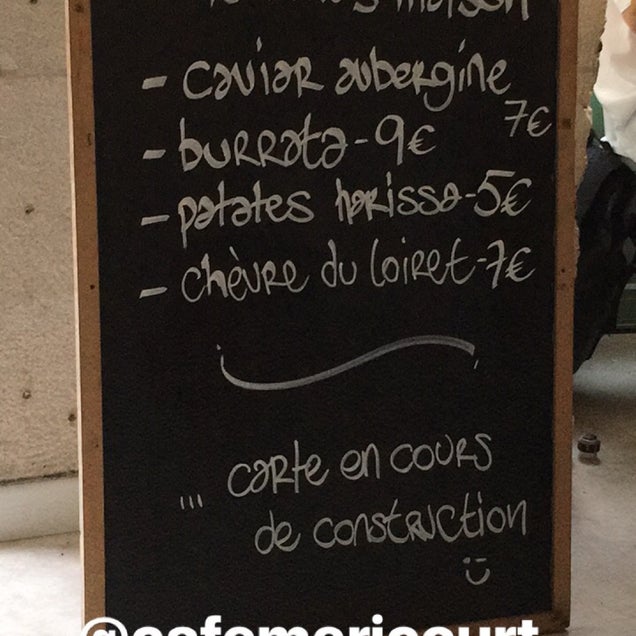 maison
- caviar aubergine
7€
- burrata - 9€
- patates harissa - 5€
- chèvre du loiret - 7€
... carte en cours
de construction
@cafemericourt